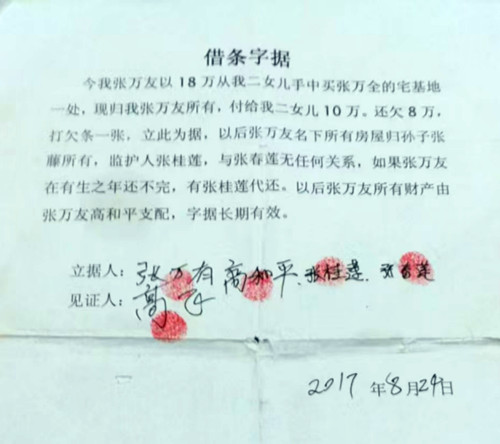 借条字据
今我张万友以18万从我二女儿手中买张万全的宅基地
一处，现归我张万友所有，付给我二女儿10万。还欠8万，
打欠条一张，立此为据，以后张万友名下所有房屋归孙子张
藤所有，监护人张桂莲，与张春莲无任何关系，如果张万友
在有生之年还不完，有张桂莲代还。以后张万友所有财产由
张万友高和平支配，字据长期有效。
立据人：张万有 高和平 张桂莲 张春莲
见证人：高
2017年8月29日